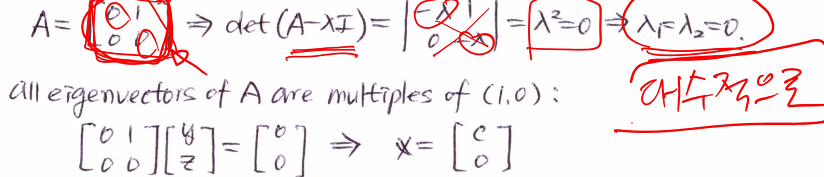 A = [0 1; 0 0] ⇒ det(A-λI) = |-λ 1; 0 -λ| = λ²=0 ⇒ λ₁=λ₂=0.
대수적으로
all eigenvectors of A are multiples of (1,0) :
[0 1; 0 0][y; z] = [0; 0] ⇒ x = [c; 0]